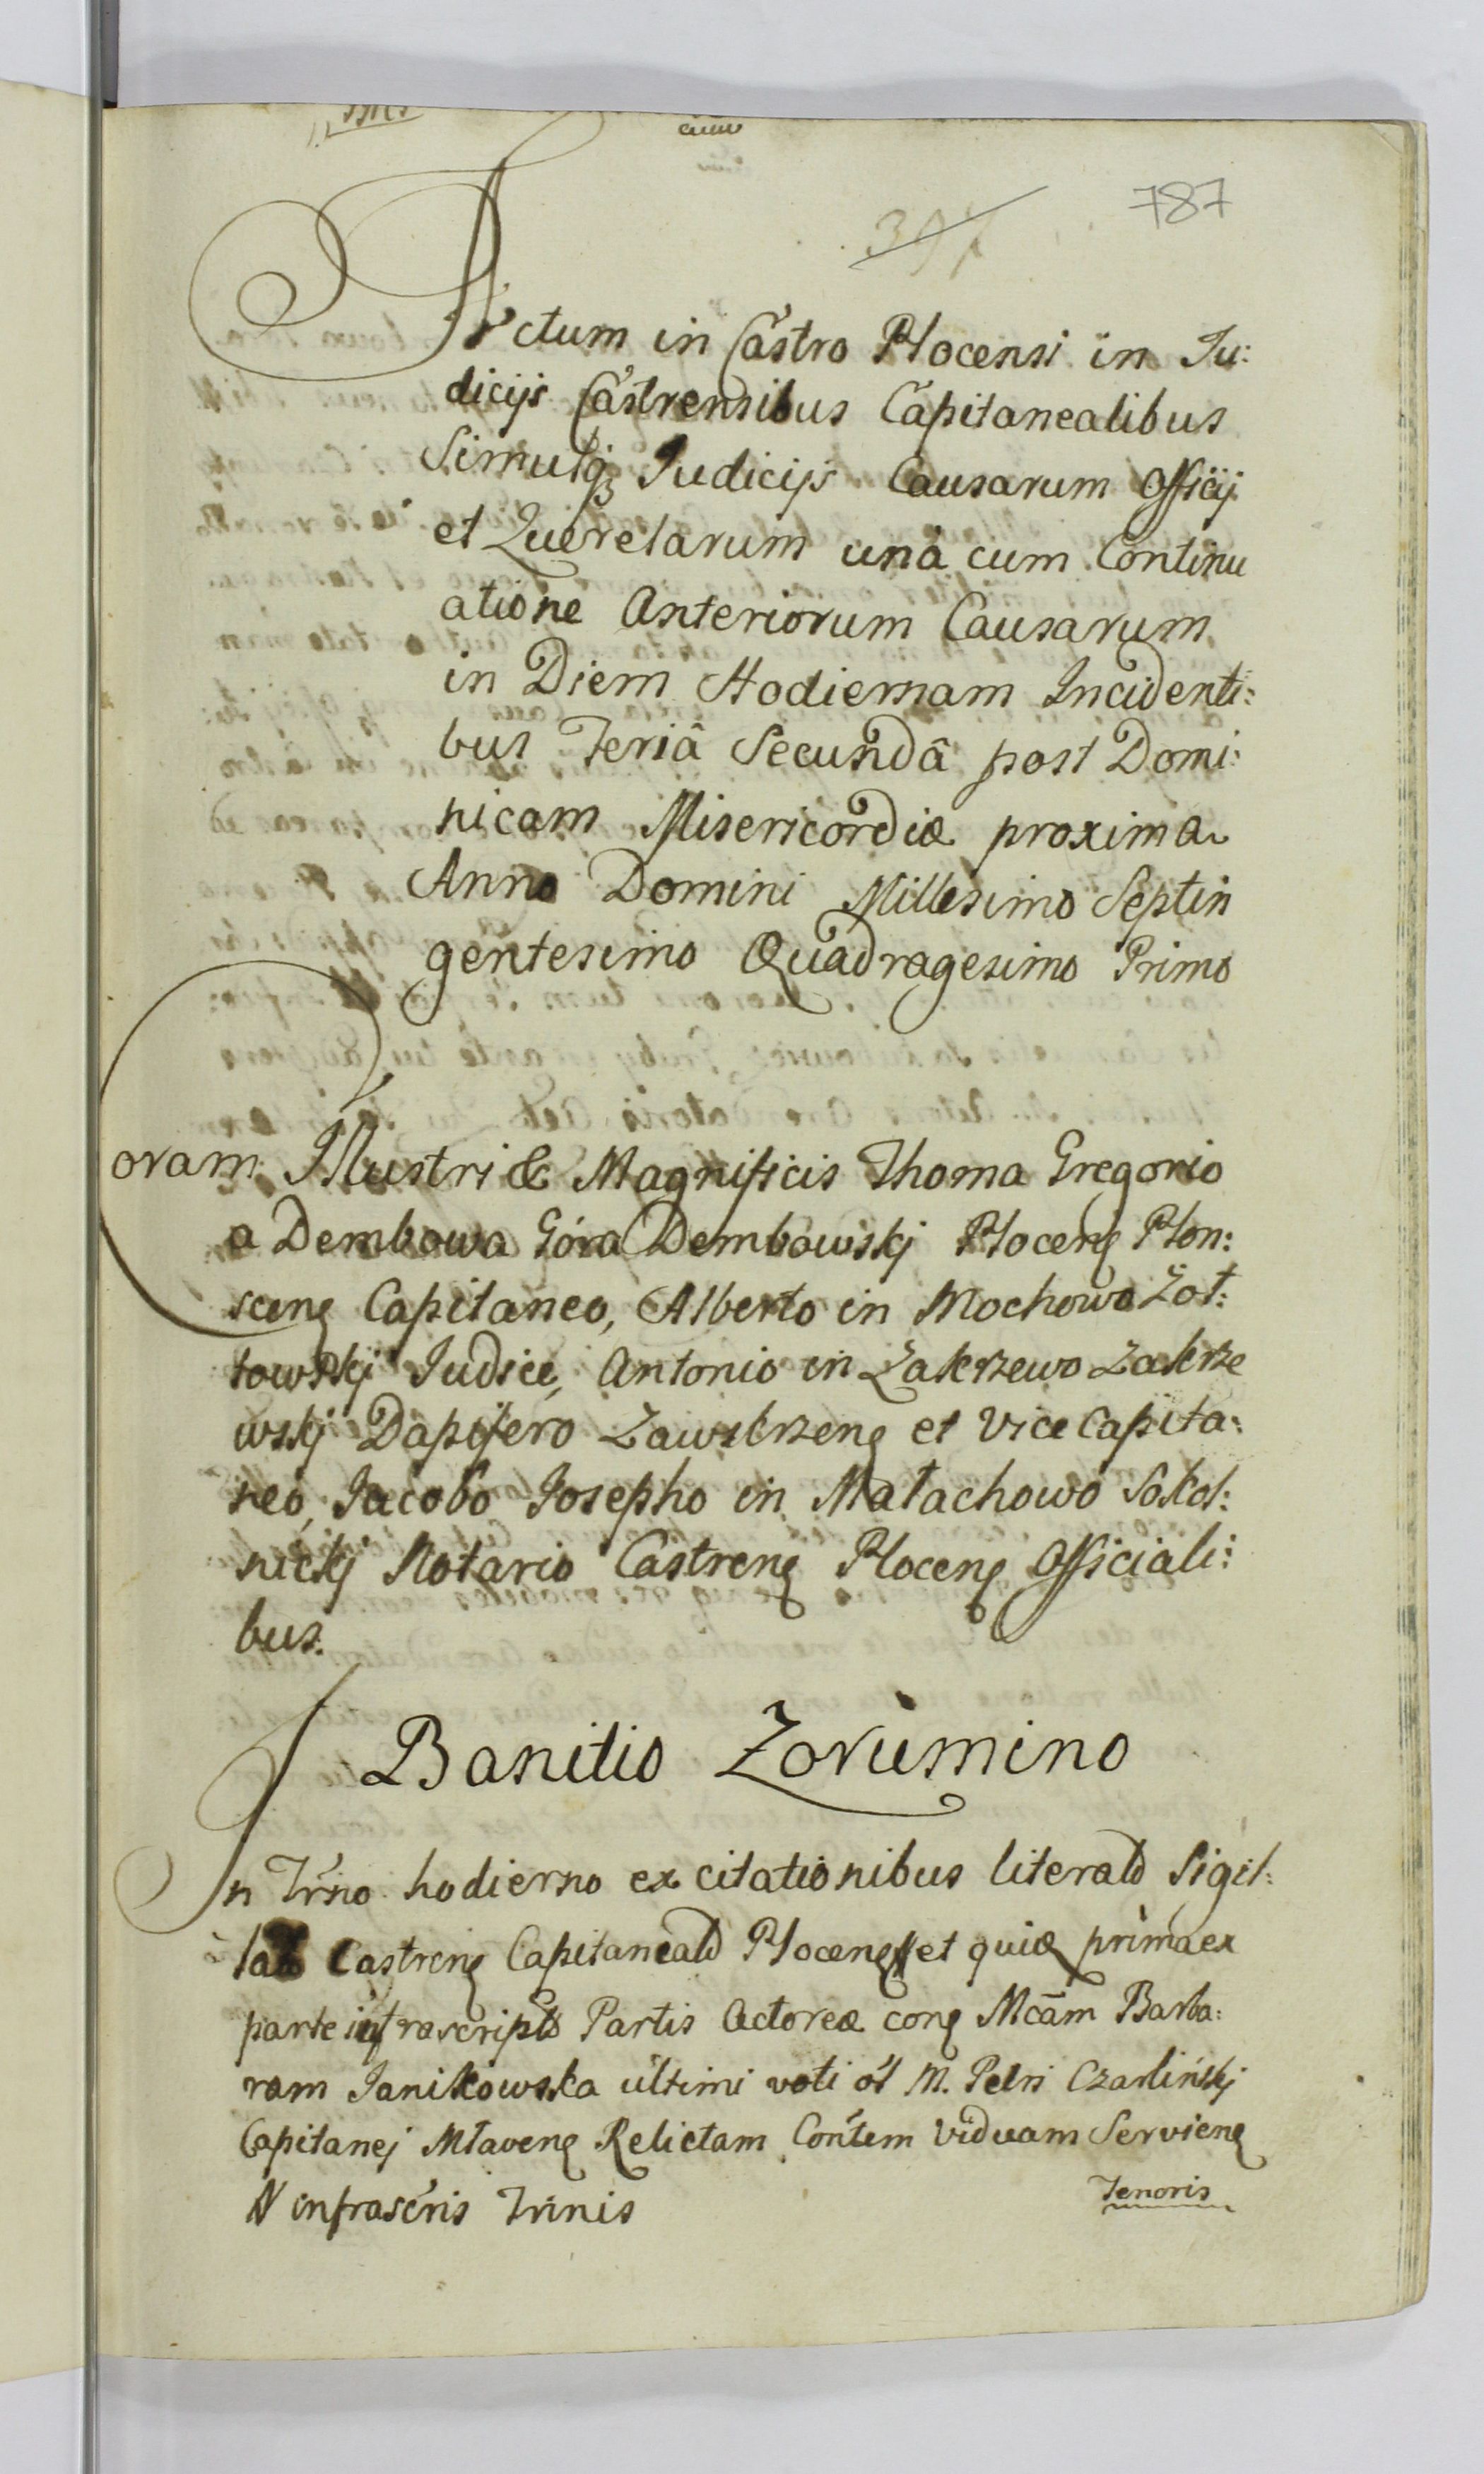 787
397
Actum in Castro Plocensi in Iu:
dicijs Castrensibus Capitanealibus
Simulq3 Iudicijs Causarum Officij
et Querelarum unà cum Continu
atione Anteriorum Causarum
in Diem Hodiernam Incidenti:
bus Feriâ Secundâ post Domi:
nicam Misericordiæ proxima
Anno Domini Millesimo Septin
gentesimo Quadragesimo Primo
Coram Illustri & Magnificis Thoma Gregorio
a Dembowa Góra Dembowskj Płoceng Płon:
sceng Capitaneo, Alberto in Mochowo Zoł:
towskj Iudice, Antonio in Zakrzewo Zakrze
wskj Dapifero Zawskrzeng et Vice Capita:
neo, Iacobo Iosepho in Małachowo Sokol:
nickj Notario Castreng Płoceng Officiali:
bus.
Banitio Zorùmino
In Trno hodierno ex citationibus literald Sigil:
Castreng Capitaneald Płoceng et quiæ prima ex
parte infrascripto Partis Actoreæ cong Mcam Barba:
ram Janikowska ultimi voti ol M. Petri Czarlińskj
Capitanej Mławeng Relictam Contem Viduam Servieng
N infrascris Trinis
Tenoris